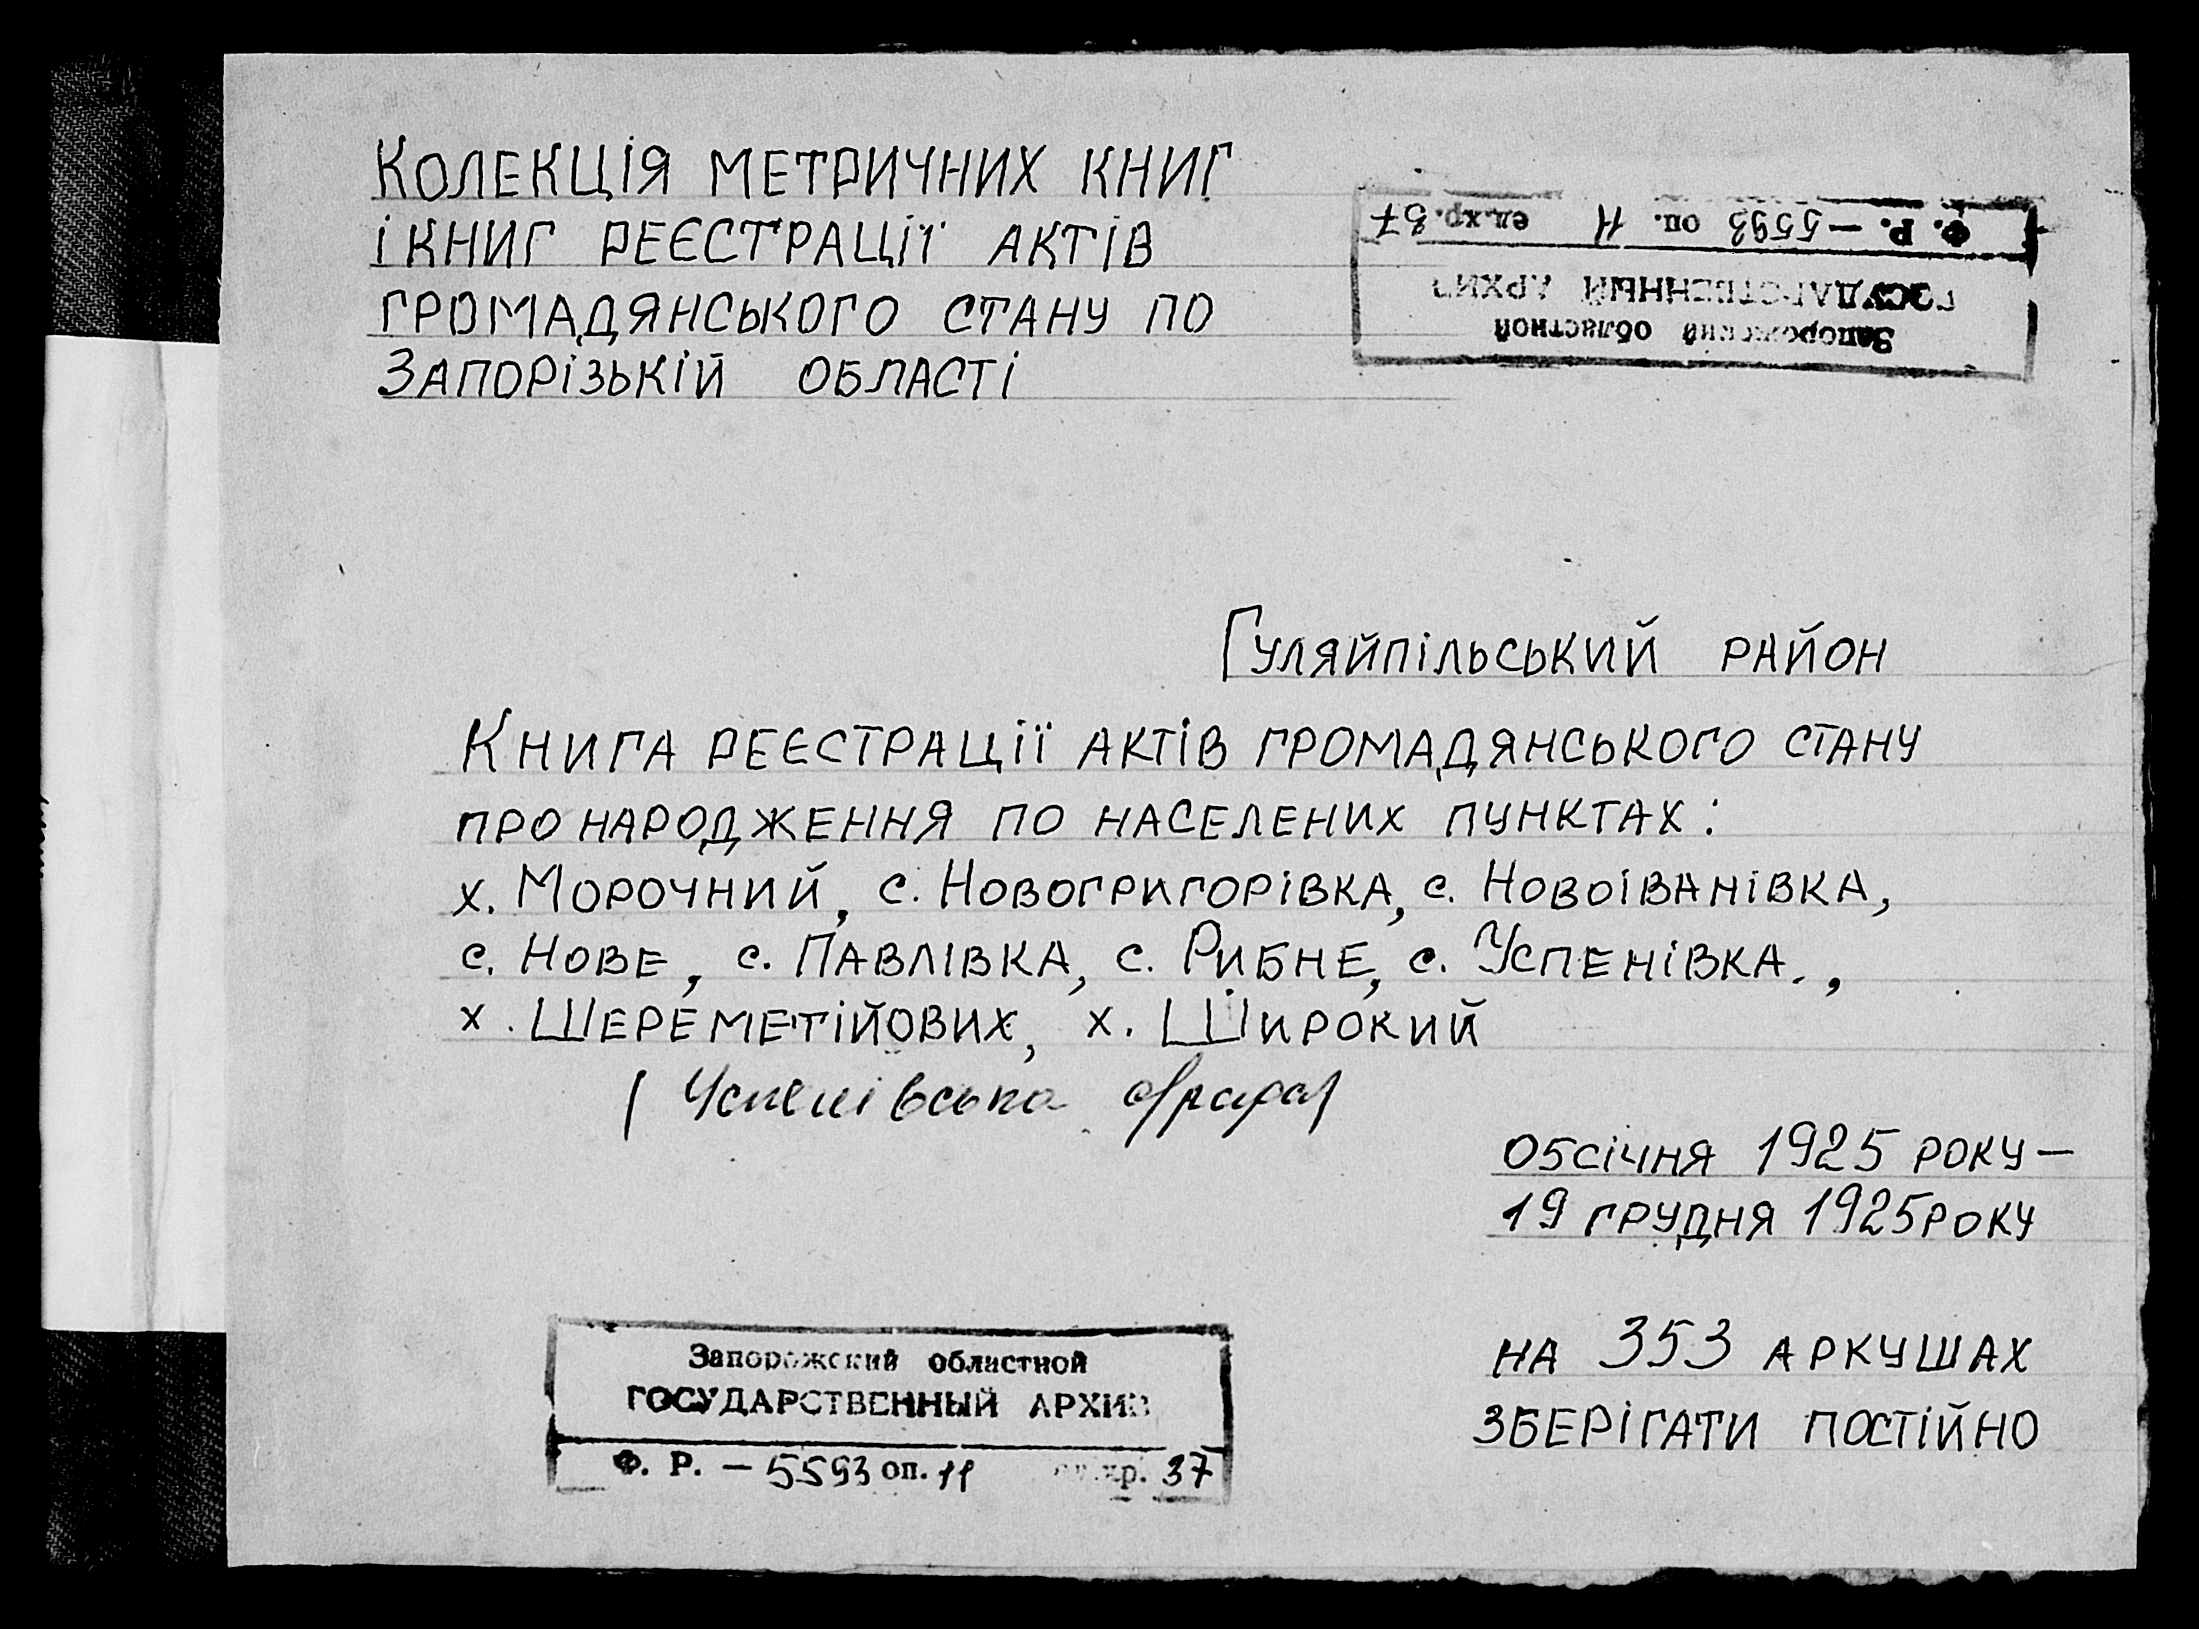 Колекція метричних книг
і книг реєстрації актів
громадянського стану по
Запорізькій області
Ф. Р. – 5593 оп. 11 ед.хр. 37
ГОСУДАРСТВЕННЫЙ АРХИВ
Запорожский областной
Гуляйпільський район
Книга реєстрації актів громадянського стану
про народження по населених пунктах:
х. Морочний, с. Новогригорівка, с. Новоіванівка,
с. Нове, с. Павлівка, с. Рибне, с. Успенівка.,
х. Шереметійових, х. Широкий
Успенівська
05 січня 1925 року –
19 грудня 1925 року
на 353 аркушах
зберігати постійно
Запорожский областной
ГОСУДАРСТВЕННЫЙ АРХИВ
Ф. Р. – 5593 оп. 11 ед.хр. 37